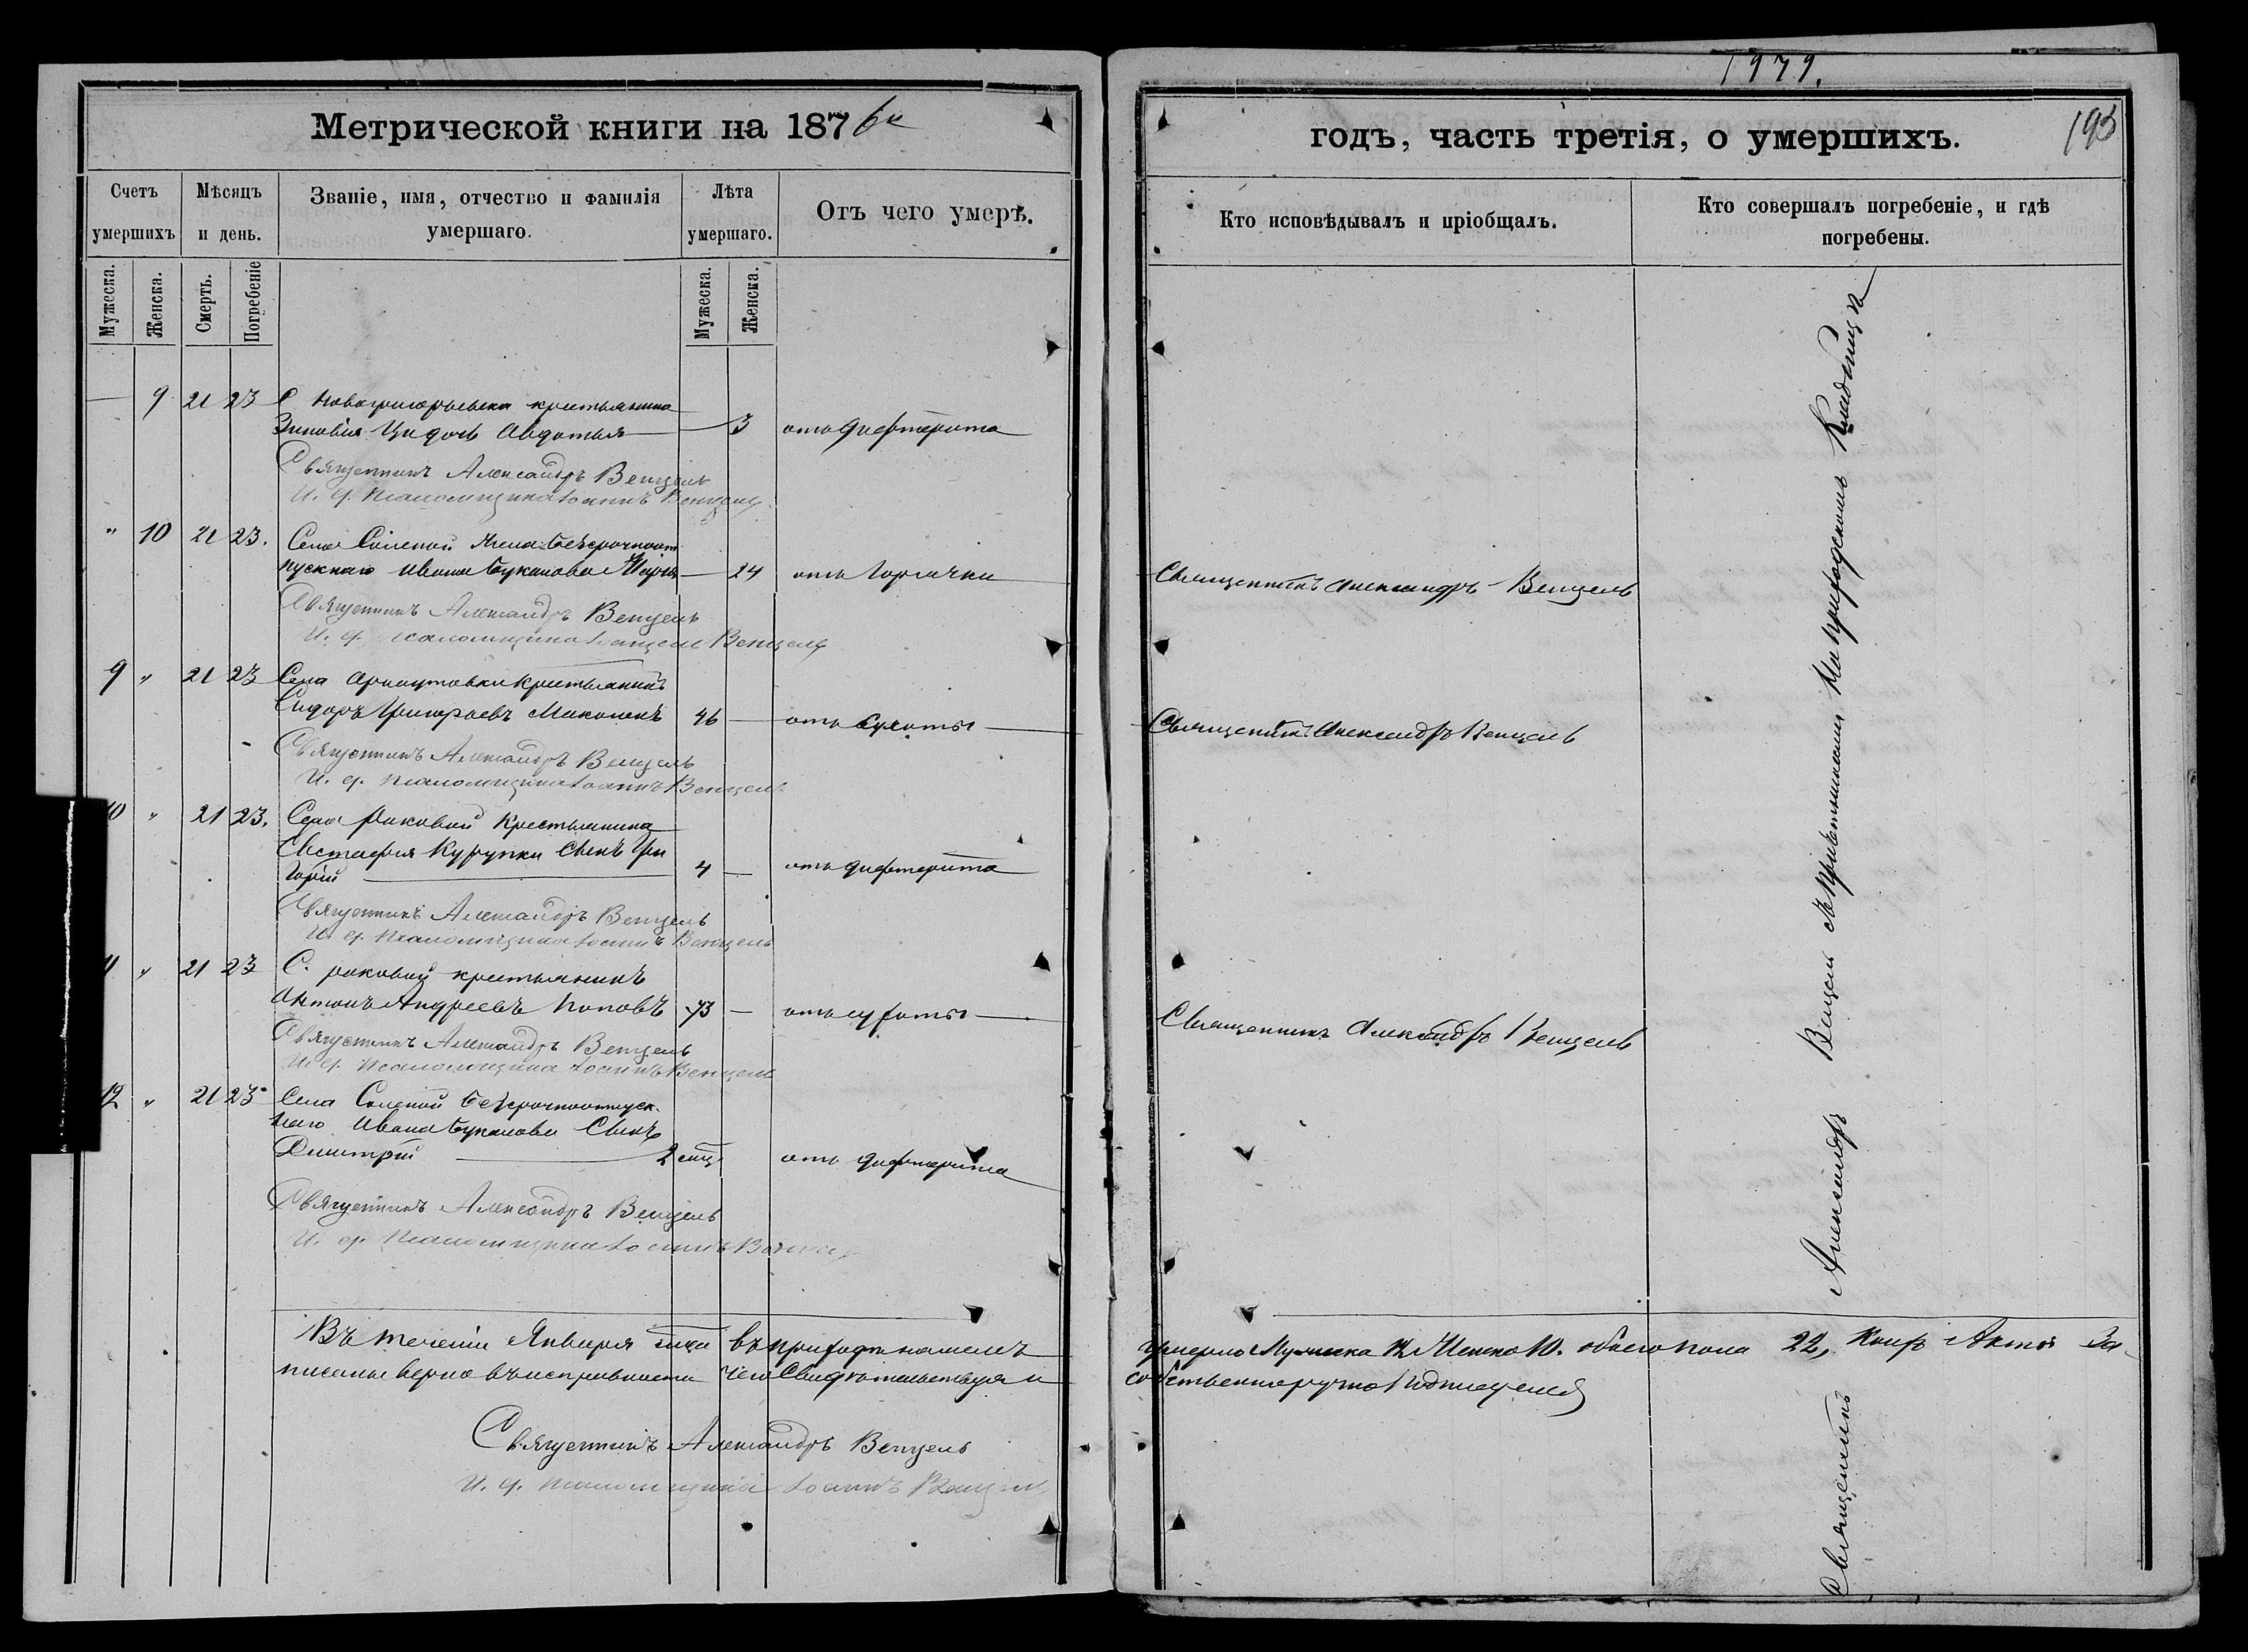 1979.
193
Метрической книги на 1876й
годъ, часть третія, о умершихъ.
Счетъ умершихъ
Мѣсяцъ и день.
Званіе, имя, отчество и фамилія умершаго.
Лѣта умершаго.
Отъ чего умеръ.
Кто исповѣдывалъ и пріобщалъ.
Кто совершалъ погребеніе, и гдѣ погребены.
Мужеска.
Женска.
Смерть.
Погребеніе
Мужеска.
Женска.
— 9 21 23 С Новогригорьевки крестьянина
Зиновія дочь Авдотья — 3 отъ дифтерита
Священникъ Александръ Венцель
И. д. псаломщика Іоаннъ Венцель
" 10 21 23. Села Соленой Жена безсрочноот
пускнаго Ивана Буканова Марія — 24 отъ горячки
Священникъ Александръ Венцель
Священникъ Александръ Венцель
И. д. псаломщика Венцель
9 " 21 23 Села Арнаутовки крестьянинъ
Сидоръ Григорьевъ 46 — отъ сухоты
Священникъ Александръ Венцель
Священникъ Александръ Венцель
И. д. псаломщика Іоаннъ Венцель
10 " 21 23. Села Раковой Крестьянина
Евстафія Курупки сынъ Гри
горій 4 — отъ дифтерита
Священникъ Александръ Венцель
И. д. псаломщика Іоаннъ Венцель
11 " 21 23 С. раковой крестьянинъ
Антонъ Андреевъ Поповъ 73 — отъ сухоты
Священникъ Александръ Венцель
Священникъ Александръ Венцель
И. д. псаломщика Іоаннъ Венцель
12 " 21 23. Села Соленой безсрочноотпуск-
наго Ивана Буканова Сынъ
Дмитрій 2 мц отъ дифтерита
Священникъ Александръ Венцель
И. д. псаломщика Іоаннъ
Священникъ Александръ Венцель съ причетниками на приходскомъ кладбищѣ
Въ теченіи Января мца въ приходѣ нашемъ умерло Мужеска 12 Женско 10. обоего пола 22, Акты За-
писаны верно въ исправности чего Свидѣтельствуя и собственноручно подписуемся
Священникъ Александръ Венцель
И. д. псаломщика Іоаннъ Венцель